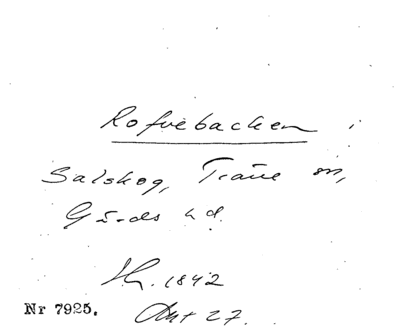 Rofvebacken i
Salskog, Träne sn,
Gärds hd.
Sk. 1842
Akt 27.
Nr 7925.